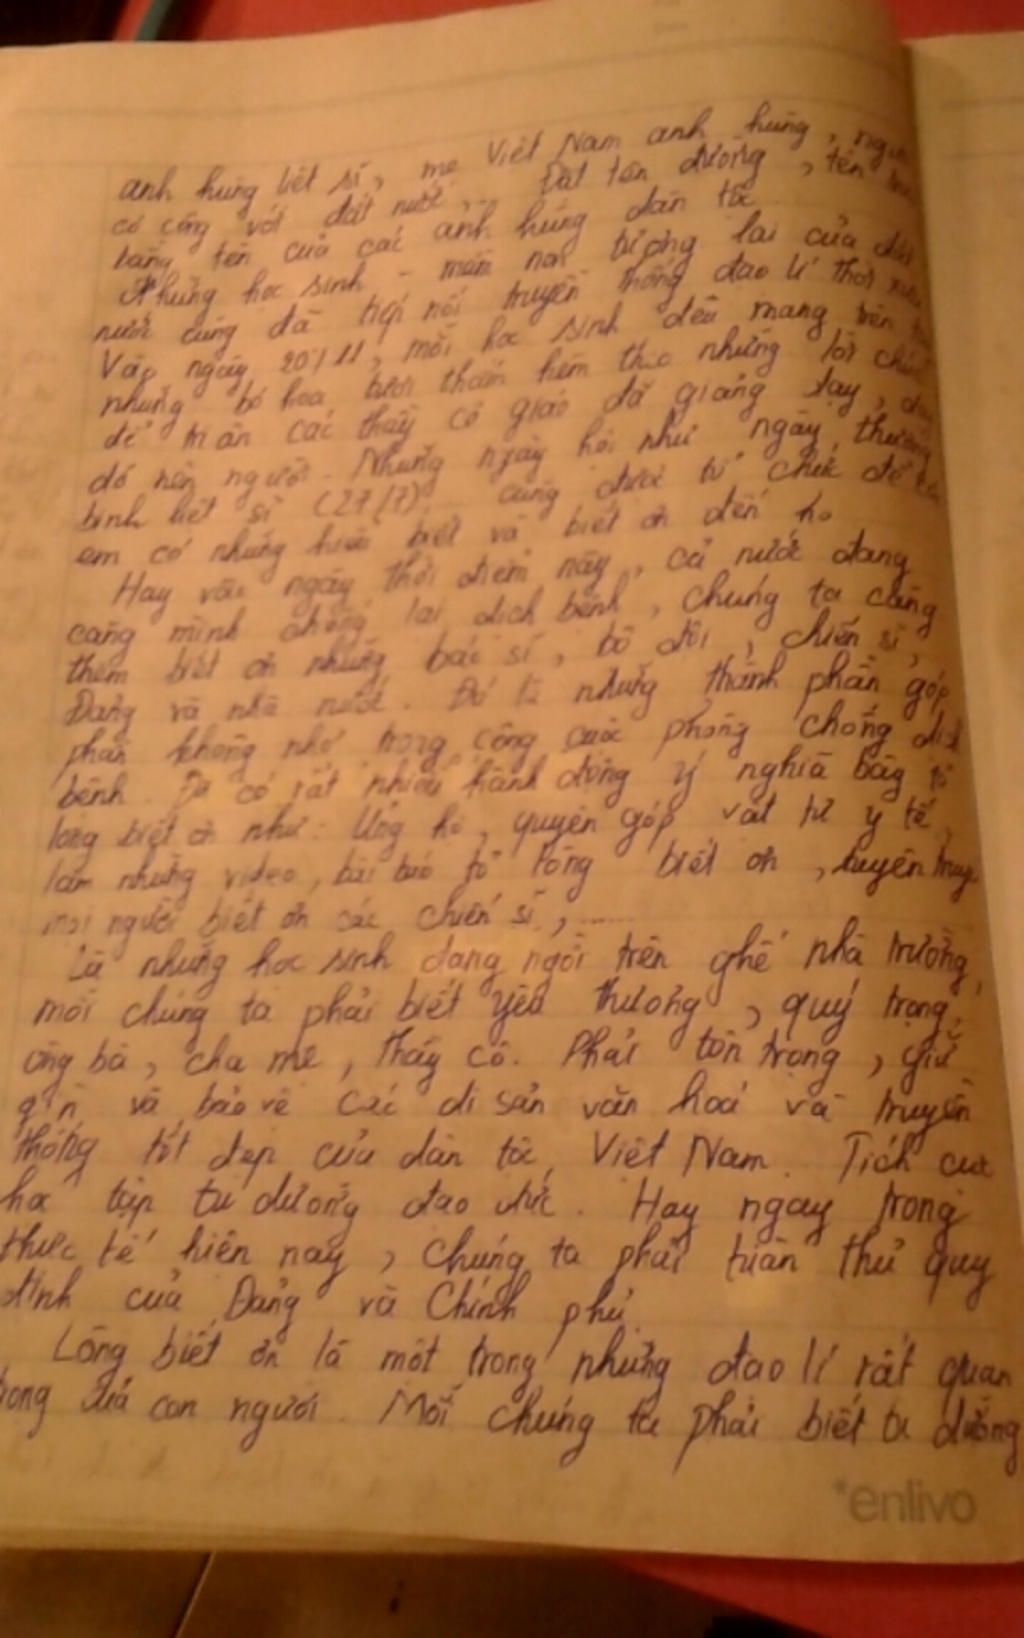 anh hùng liệt sĩ, mẹ Việt Nam anh hùng,
có công với đất nước,... Đặt tên đường, tên
bằng tên của các anh hùng dân tộc.
Những học sinh - mầm non tương lai của đất
nước cũng đã tiếp nối truyền thống đạo lí thời xưa
Vào ngày 20/11, mỗi học sinh đều mang trên
những bó hoa tươi thắm kèm theo những lời chúc
để tri ân các thầy cô giáo đã giảng dạy,
dỗ nên người. Những ngày hội như ngày thương
binh liệt sĩ (27/7) cũng được tổ chức để
em có những hiểu biết và biết ơn đến họ
Hay vào ngay thời điểm này, cả nước đang
căng mình chống lại dịch bệnh, chúng ta càng
thêm biết ơn những bác sĩ, bộ đội, chiến sĩ,
Đảng và nhà nước. Đó là những thành phần góp
phần không nhỏ trong công cuộc phòng chống dịch
bệnh. Đã có rất nhiều hành động ý nghĩa bày tỏ
lòng biết ơn như: Ủng hộ, quyên góp vật tư y tế,
làm những video, bài báo tỏ lòng biết ơn, tuyên truyền
mọi người biết ơn các chiến sĩ,......
Là những học sinh đang ngồi trên ghế nhà trường,
mỗi chúng ta phải biết yêu thương, quý trọng
ông bà, cha mẹ, thầy cô. Phải tôn trọng, giữ
gìn và bảo vệ các di sản văn hoá và truyền
thống tốt đẹp của dân tộc Việt Nam. Tích cực
học tập tu dưỡng đạo đức. Hay ngay trong
thực tế hiện nay, chúng ta phải tuân thủ quy
định của Đảng và Chính phủ.
Lòng biết ơn là một trong những đạo lí rất quan
trọng của con người. Mỗi chúng ta phải biết tu dưỡng
enlivo